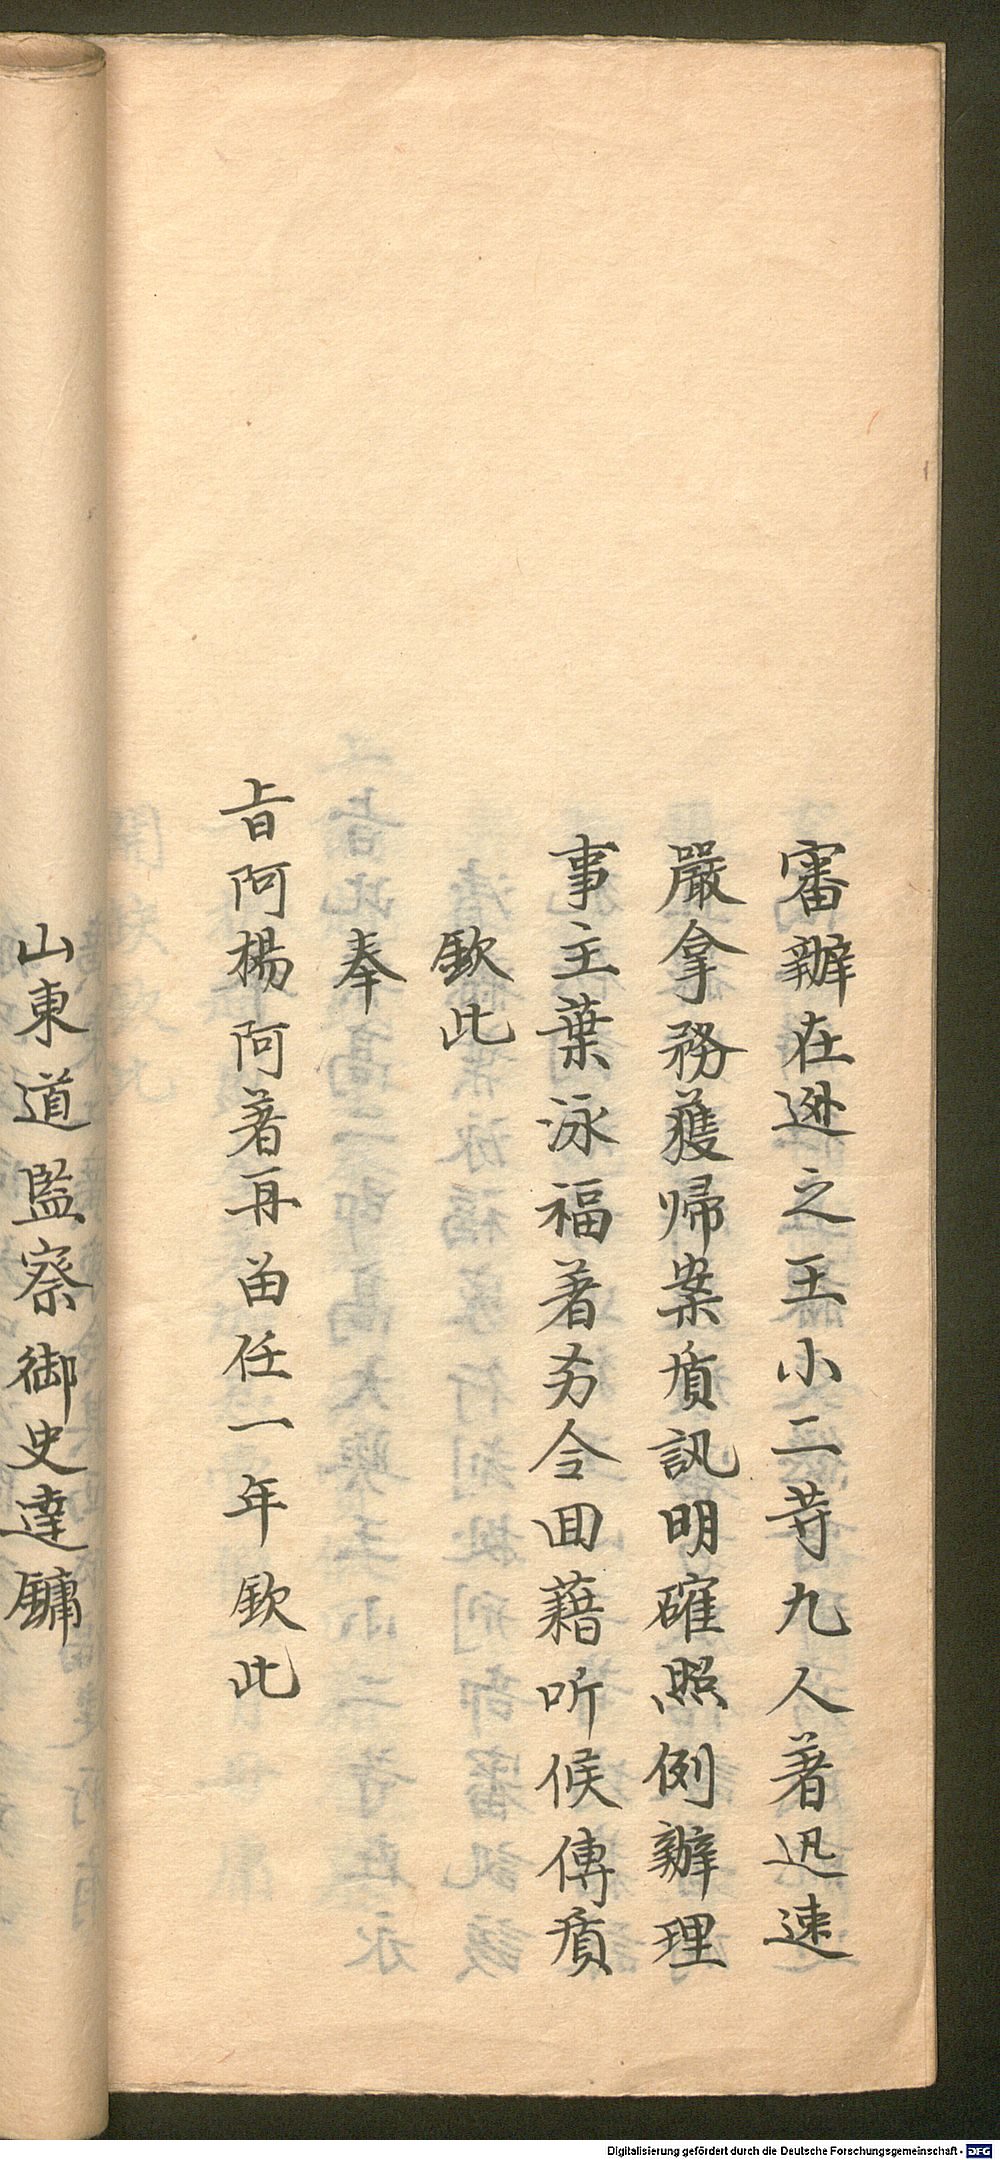 審辦在逃之王小二等九人著迅速
嚴拿務獲歸案質訊明確照例辦理
事主葉泳福著先令回藉听候傳質
欽此
奉
旨阿楊阿著再留任一年欽此
山東道監察御史達鏞
Digitalisierung gefördert durch die Deutsche Forschungsgemeinschaft - DFG